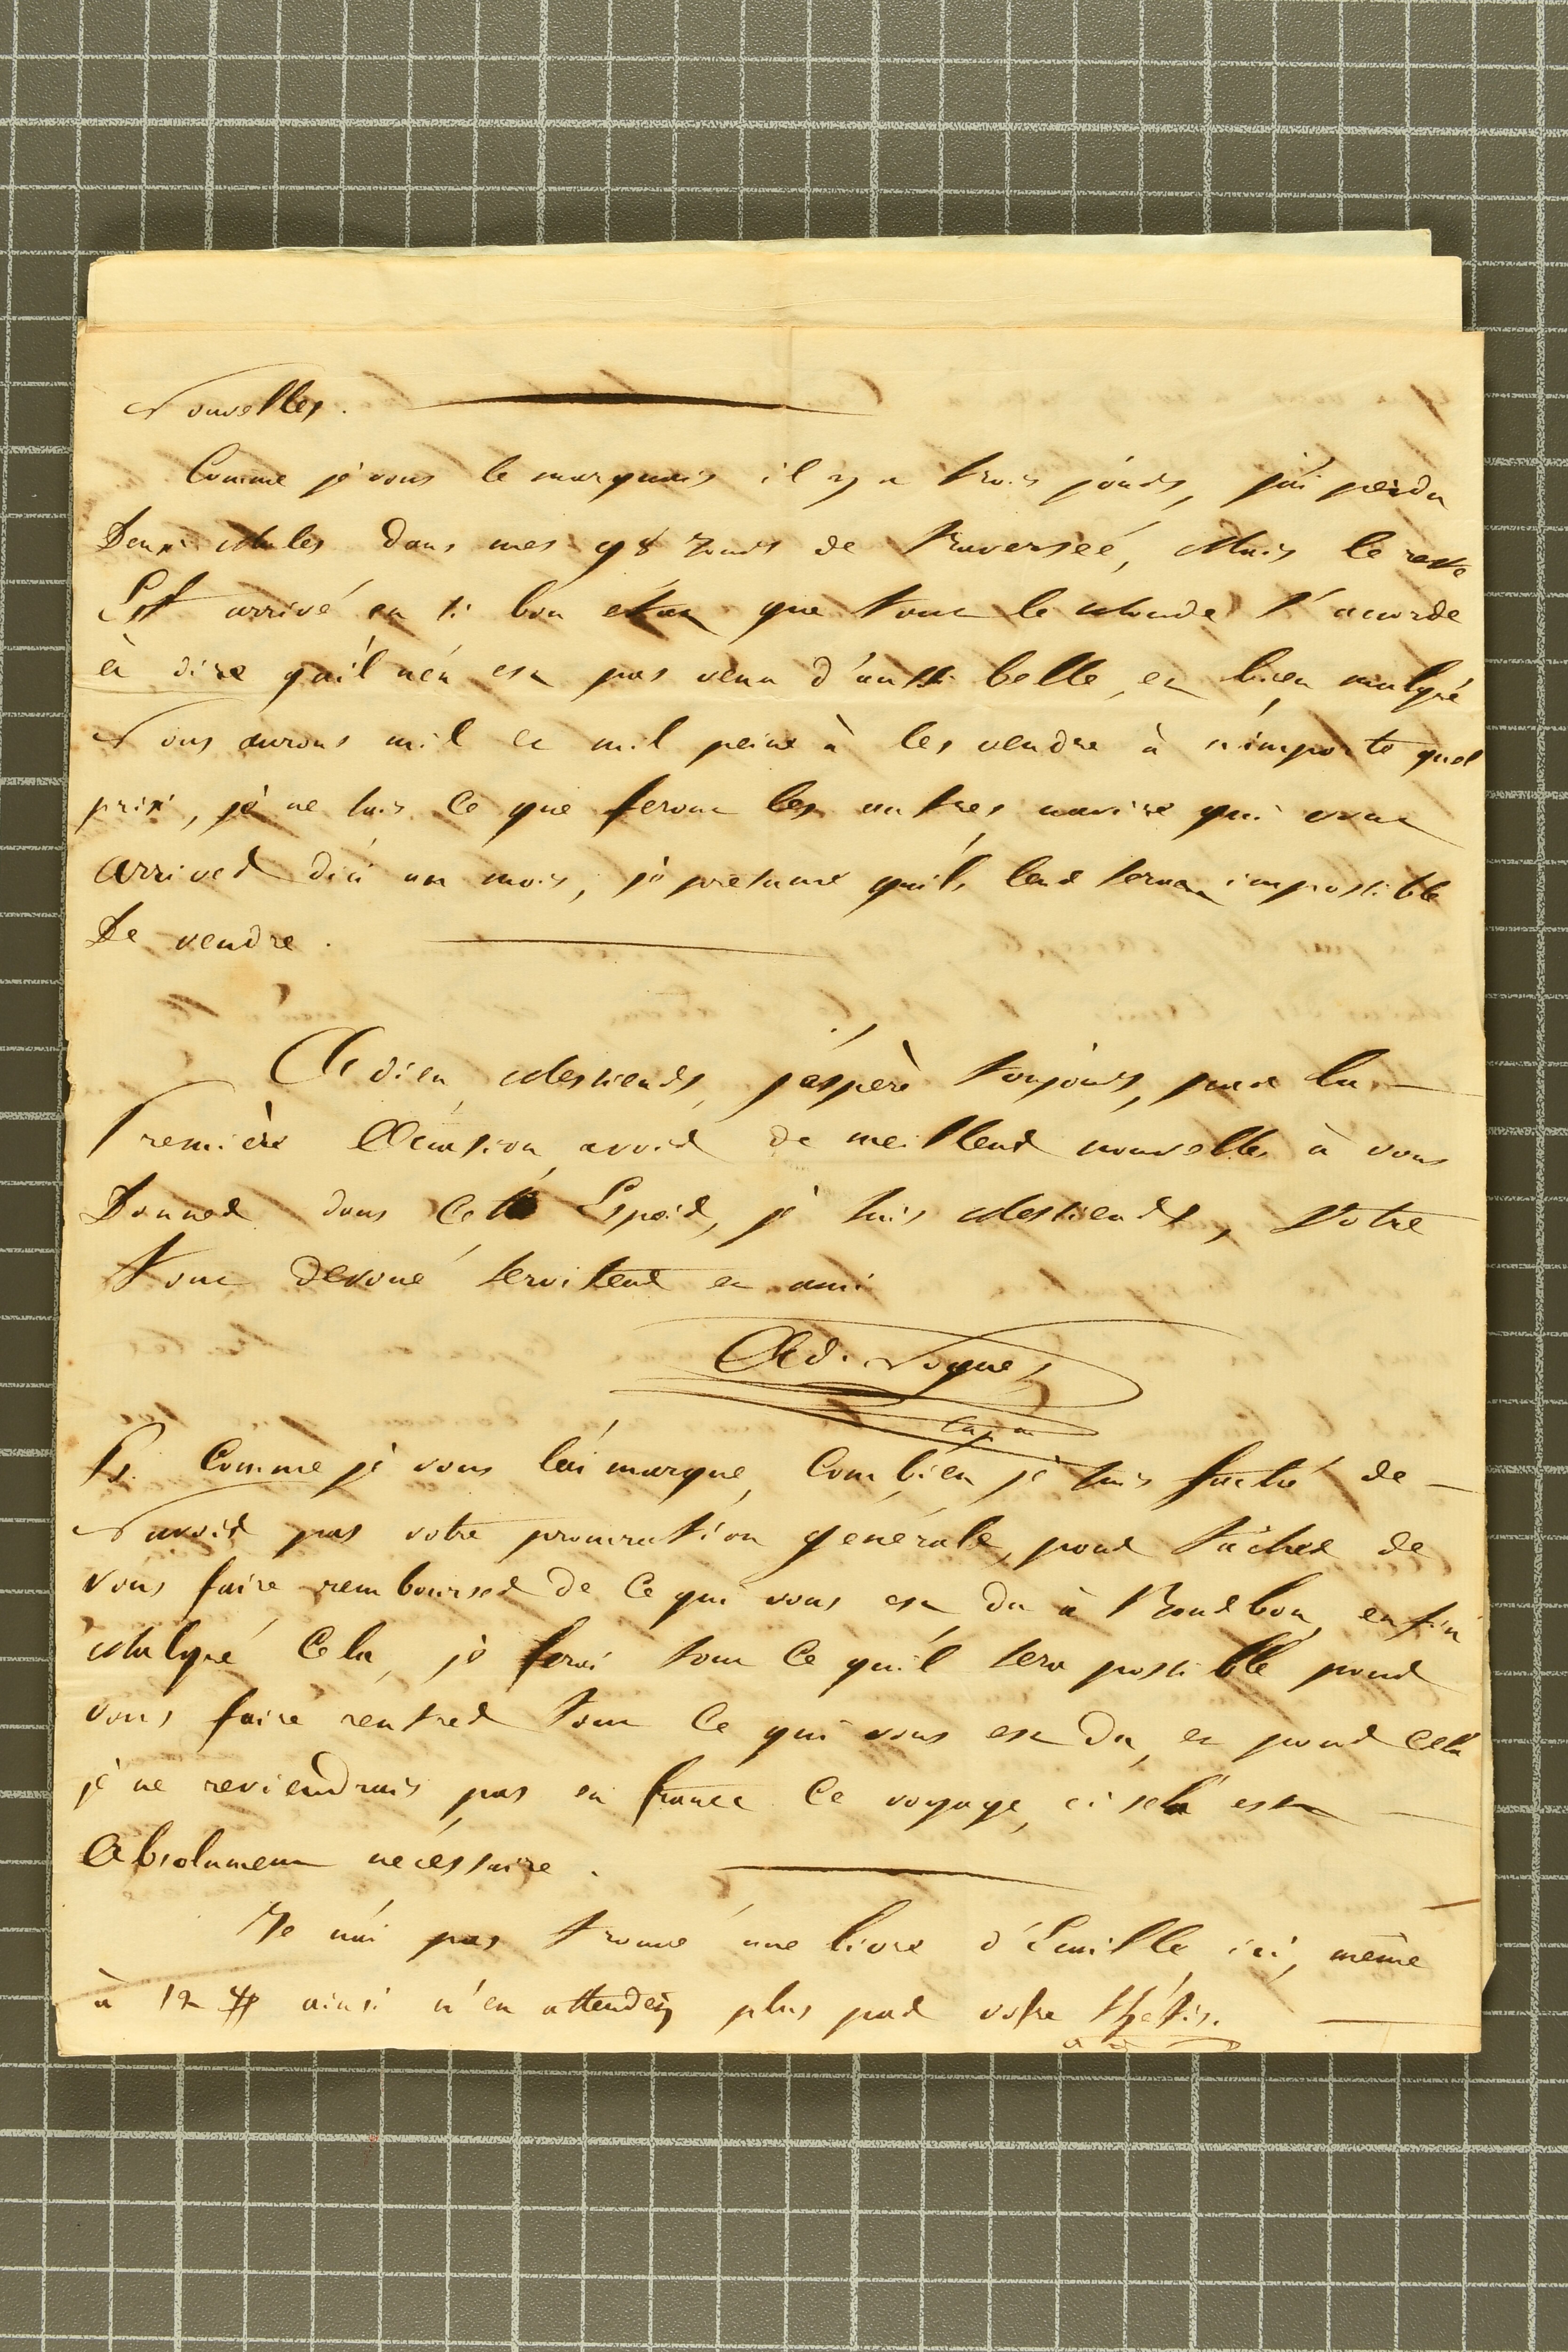 Nouvelles.
Comme je vous le marquais il y a trois jours, j'ai perdu
Deux Mules dans mes 98 Jours de Traverseé, Mais le reste
Est arrivé en si bon etat que tout le Monde s'acorde
à dire qu'il n'en est pas venu d'aussi belle, et bien malgré
Nous aurons mil et mil peine à les vendre à n'importe quel
prix, je ne sais Ce que feront les autres navire qui vont
Arriver d'ici un mois, je presume qu'ils leur seront impossible
De vendre.
Adieu, Messieurs, j'éspère toujours, pour la
Premièré Occasion, avoir de meilleur nouvelles à vous
Donner dans Cette Espoir, je suis Messieurs, Votre
Tout devoué serviteur et ami
Ad. Noguès
Ps. Comme je vous l'ai marqué, Combien je suis faché de
N'avoir pas votre procuration générale, pour tâcher de
vous faire rembourser de Ce qui vous est du à Bourbon, enfin
Malgré Cela, je ferai tout Ce qu'il sera possible pour
vous faire rentrer tout Ce qui vous est Du, et pour Cela
je ne reviendrais pas en france Ce voyage, ci sela est
Absolument nécéssaire.
Je n'ai pas trouvé une livre d'Ecaille ici, même
à 12 ₶ ainsi n'en attendez plus par votre thétis.